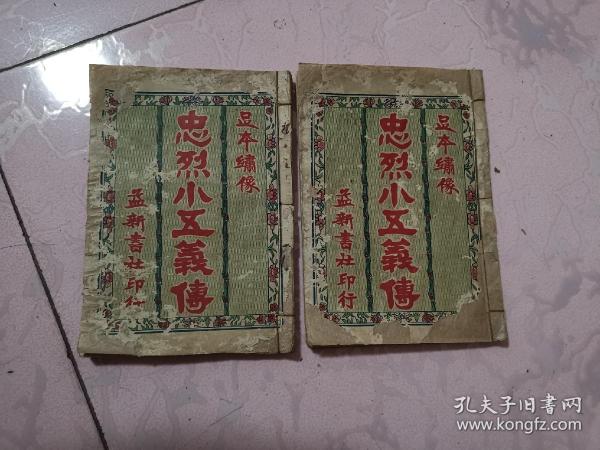 足本繡像
忠烈小五義傳
益新書社印行
足本繡像
忠烈小五義傳
益新書社印行
孔夫子旧书网
www.kongfz.com